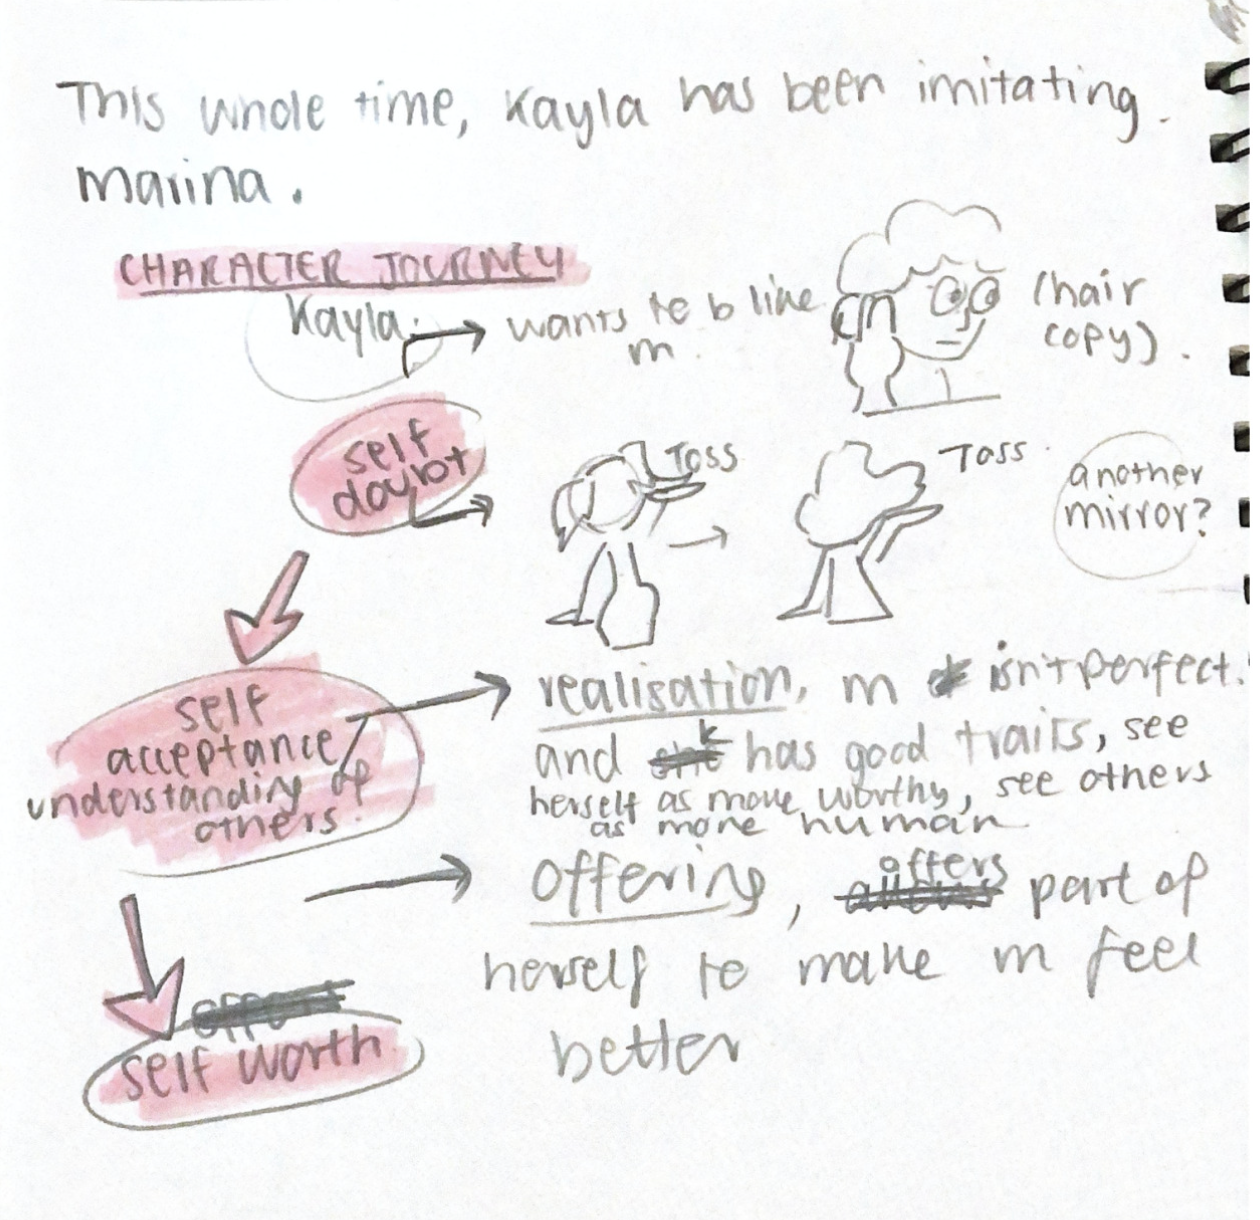 This whole time, Kayla has been imitating.
marina.
CHARACTER JOURNEY
Kayla: → wants to b like
m.
(hair
copy).
self
doubt
Toss
Toss
another
mirror?
self
acceptance/
understanding of
others.
realisation, m isn't perfect.
and k has good traits, see
herself as more worthy, see others
as more human
offering, offers part of
herself to make m feel
better
self worth